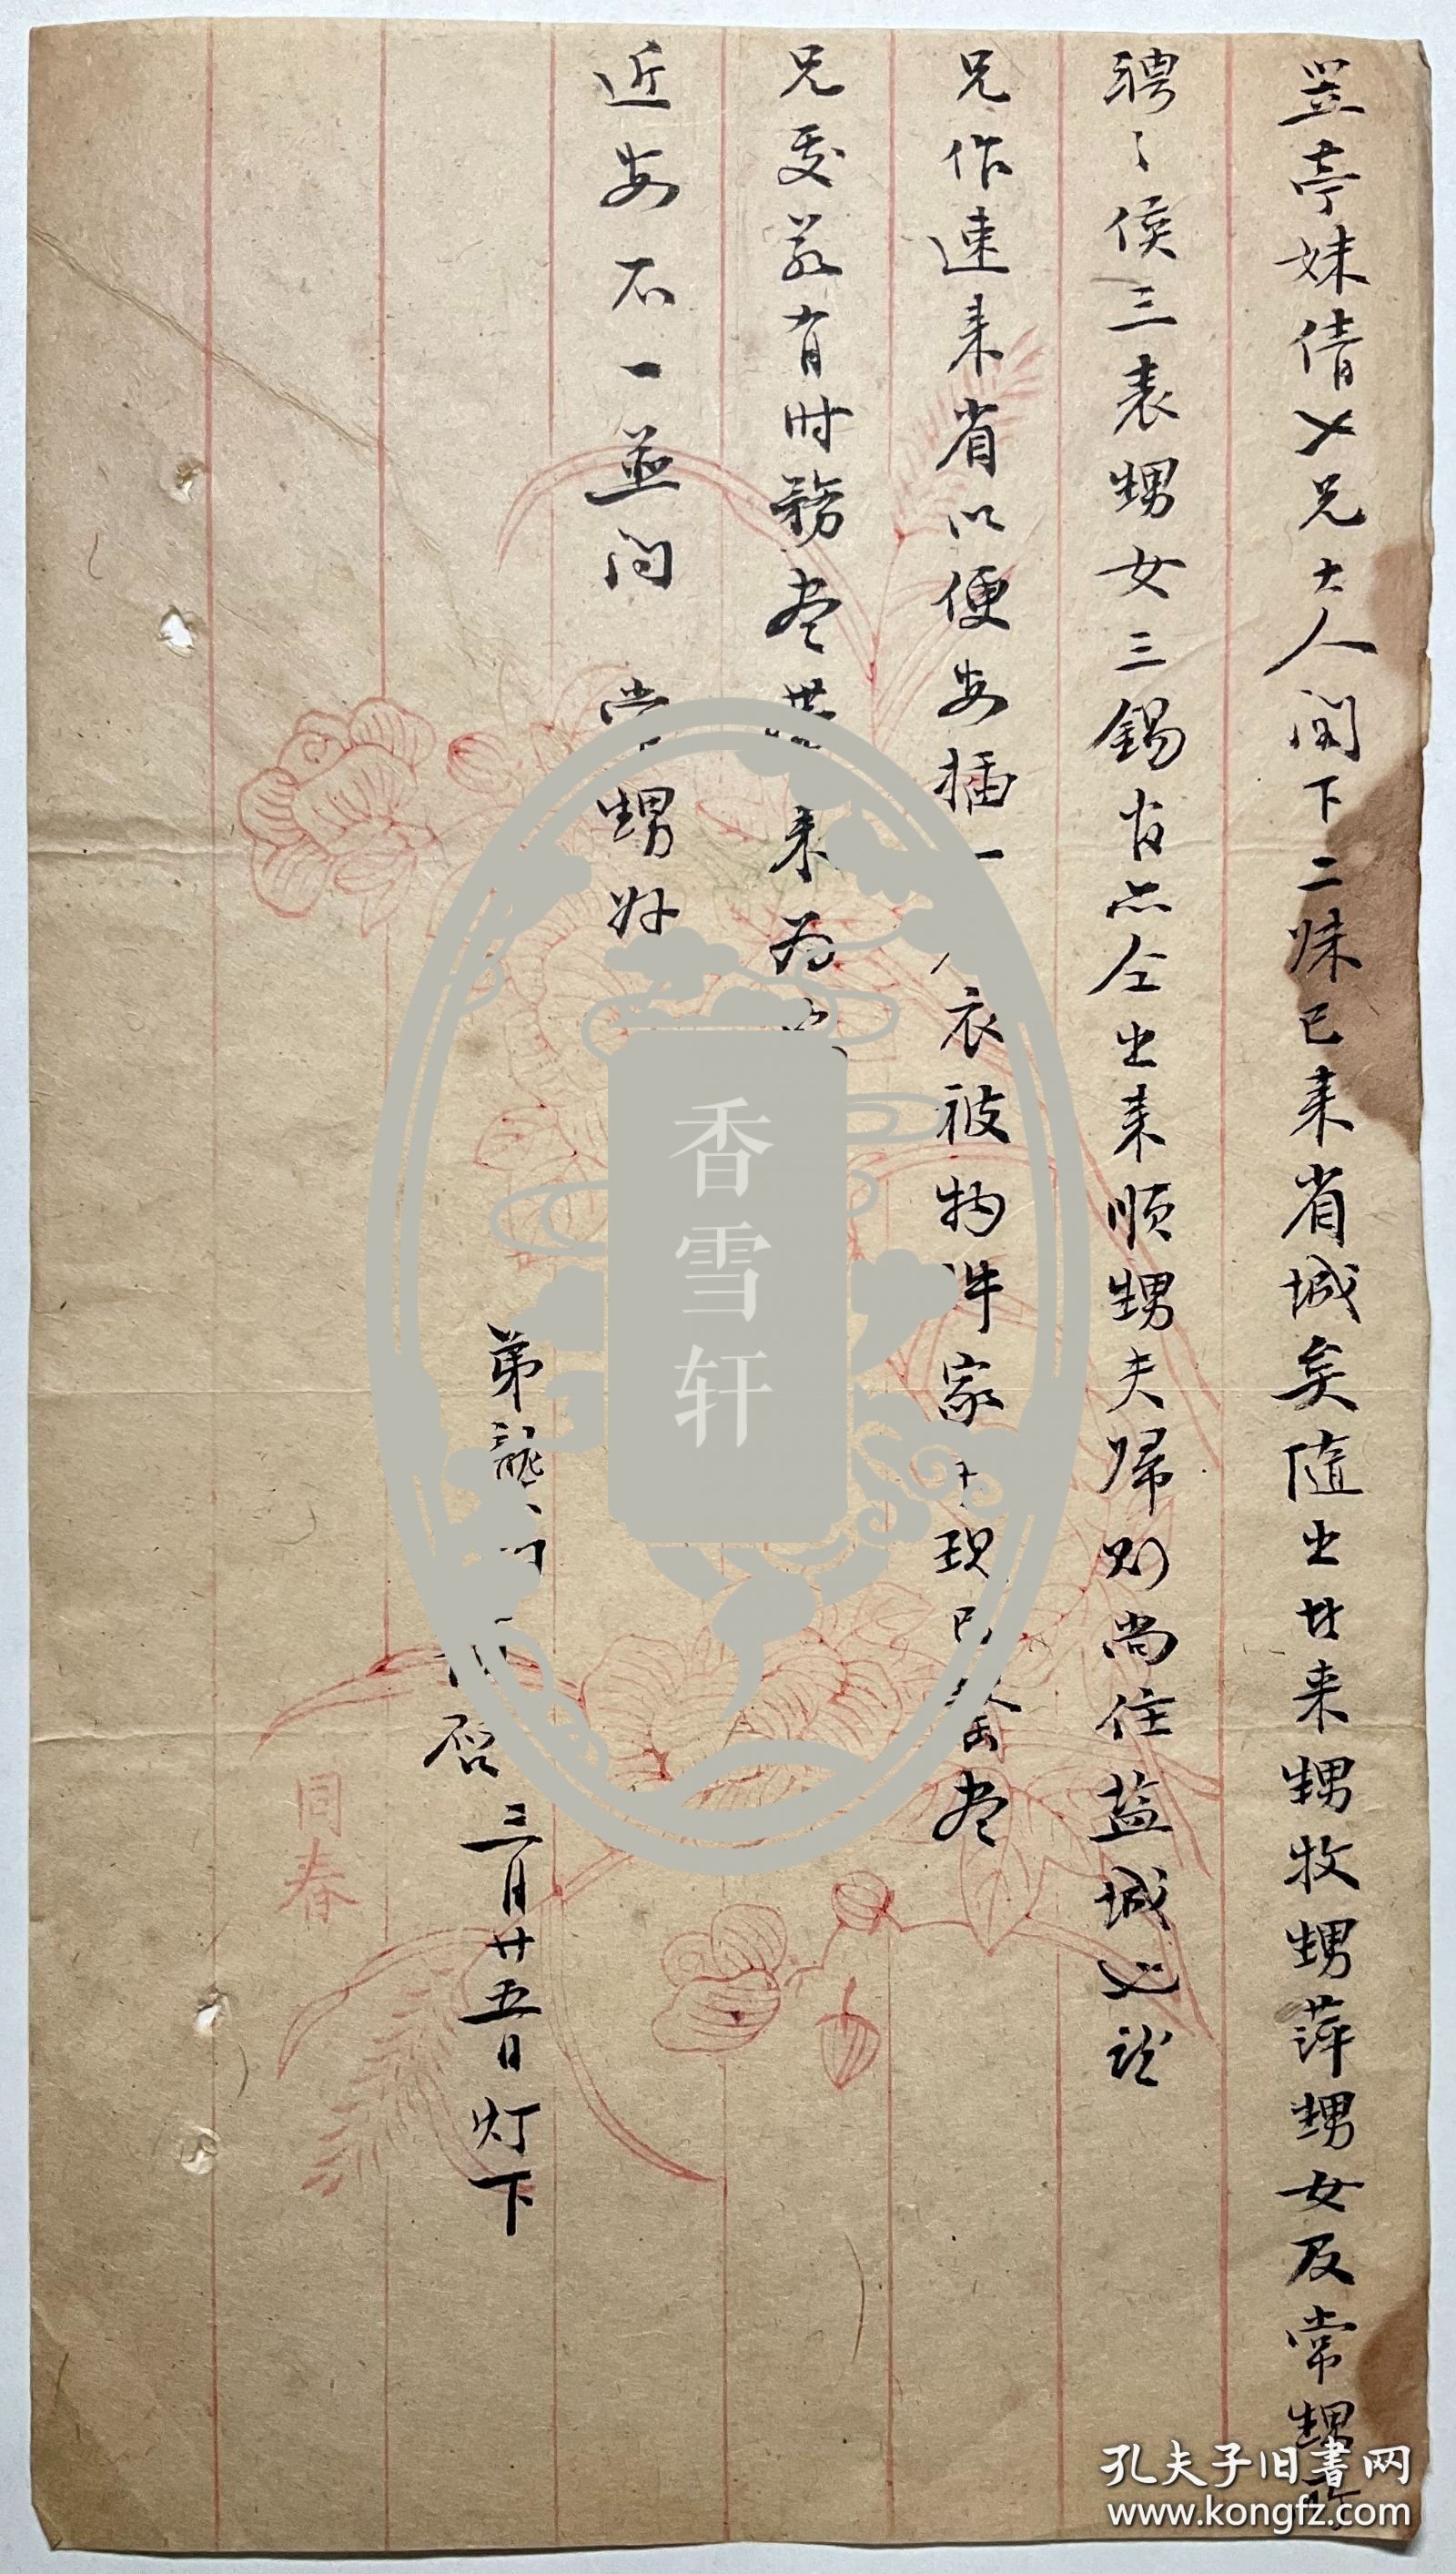 亭妹倩兄大人阁下二妹已来省城矣随之廿来甥牧甥萍甥女及常甥
聘之侯三表甥女三锡官亦仝之来顺甥夫归则尚住盐城
兄作速来省以便安插一衣被物件家中现已尽
兄要有时务尽来为
近安不一并问 常甥好
弟龍
启
三月廿五日灯下
同春
香雪轩
孔夫子旧書网
www.kongfz.com